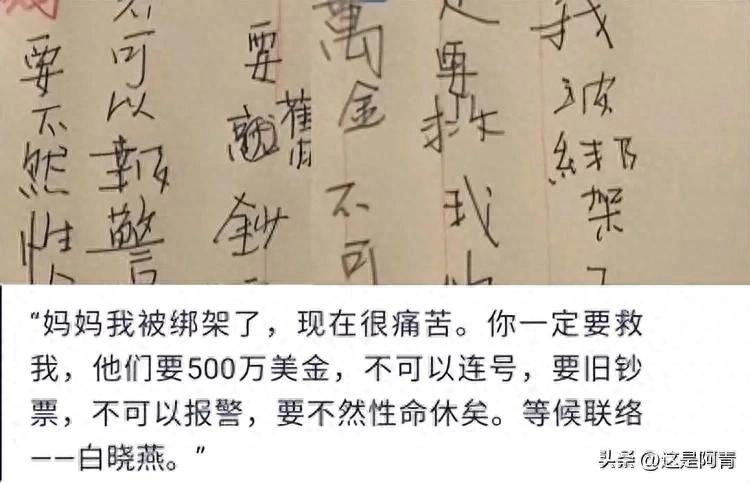 我被綁架了
定要救我
萬金不可
要舊鈔
不可以報警
要不然性
“妈妈我被绑架了，现在很痛苦。你一定要救
我，他们要500万美金，不可以连号，要旧钞
票，不可以报警，要不然性命休矣。等候联络
——白晓燕。”
头条 @这是阿青